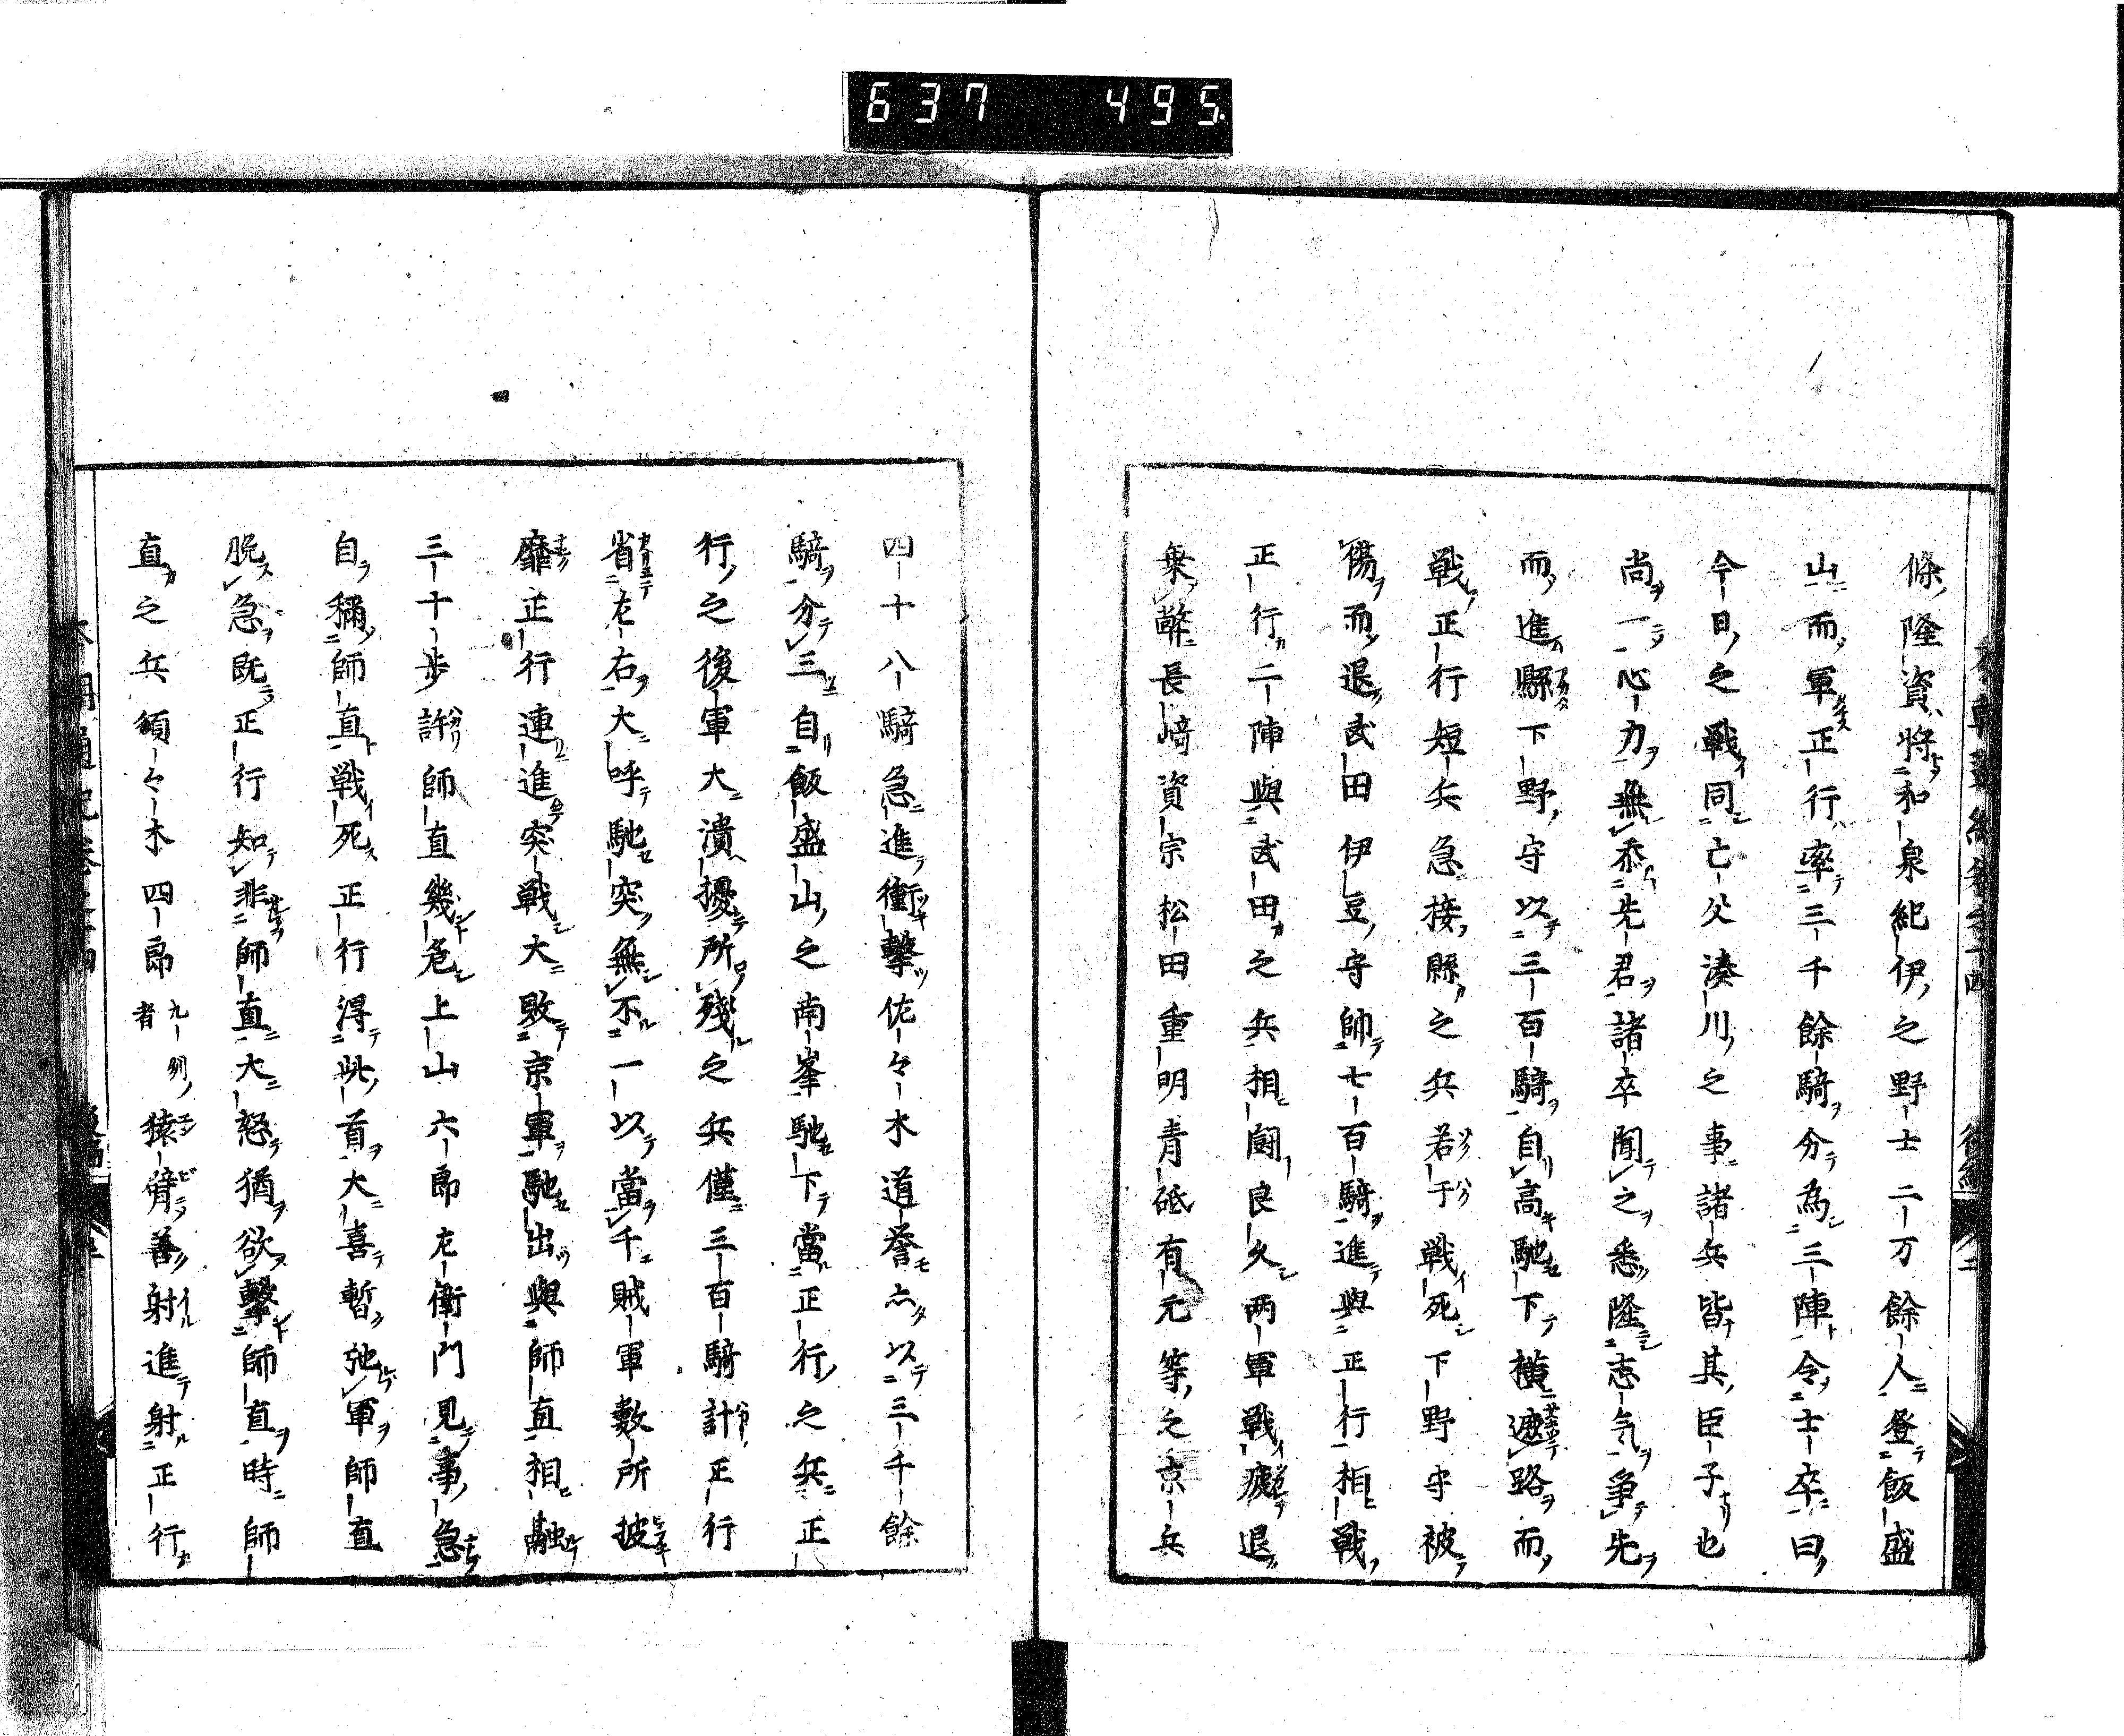 637 495
條隆資將和泉紀伊之野士二万餘人登飯盛
山而軍正行率三千餘騎分為三陣令士卒曰
今日之戰同亡父湊川之事諸兵皆其臣子也
尚一心力無忝先君諸卒聞之悉隆志气爭先
而進縣下野守以三百騎自高馳下橫遮路而
戰正行短兵急接縣之兵若于戰死下野守被
傷而退武田伊豆守帥七百騎進與正行相戰
正行二陣與武田之兵相鬪良久两軍戰疲退
乗弊長﨑資宗松田重明青砥有元等之京兵
四十八騎急進衝擊佐々木道誉亦以三千餘
騎分三自飯盛山之南峯馳下當正行之兵正
行之後軍大潰擾所殘之兵僅三百騎計正行
省左右大呼馳突無不一以當千賊軍數所披
靡正行連進突戰大敗京軍馳出與師直相融
三十步許師直幾危上山六郎左衛門見事急
自稱師直戰死正行得此首大喜暫弛軍師直
脫急既正行知非師直大怒猶欲擊師直時師
直之兵須々木四郎九州者猿臂善射進射正行